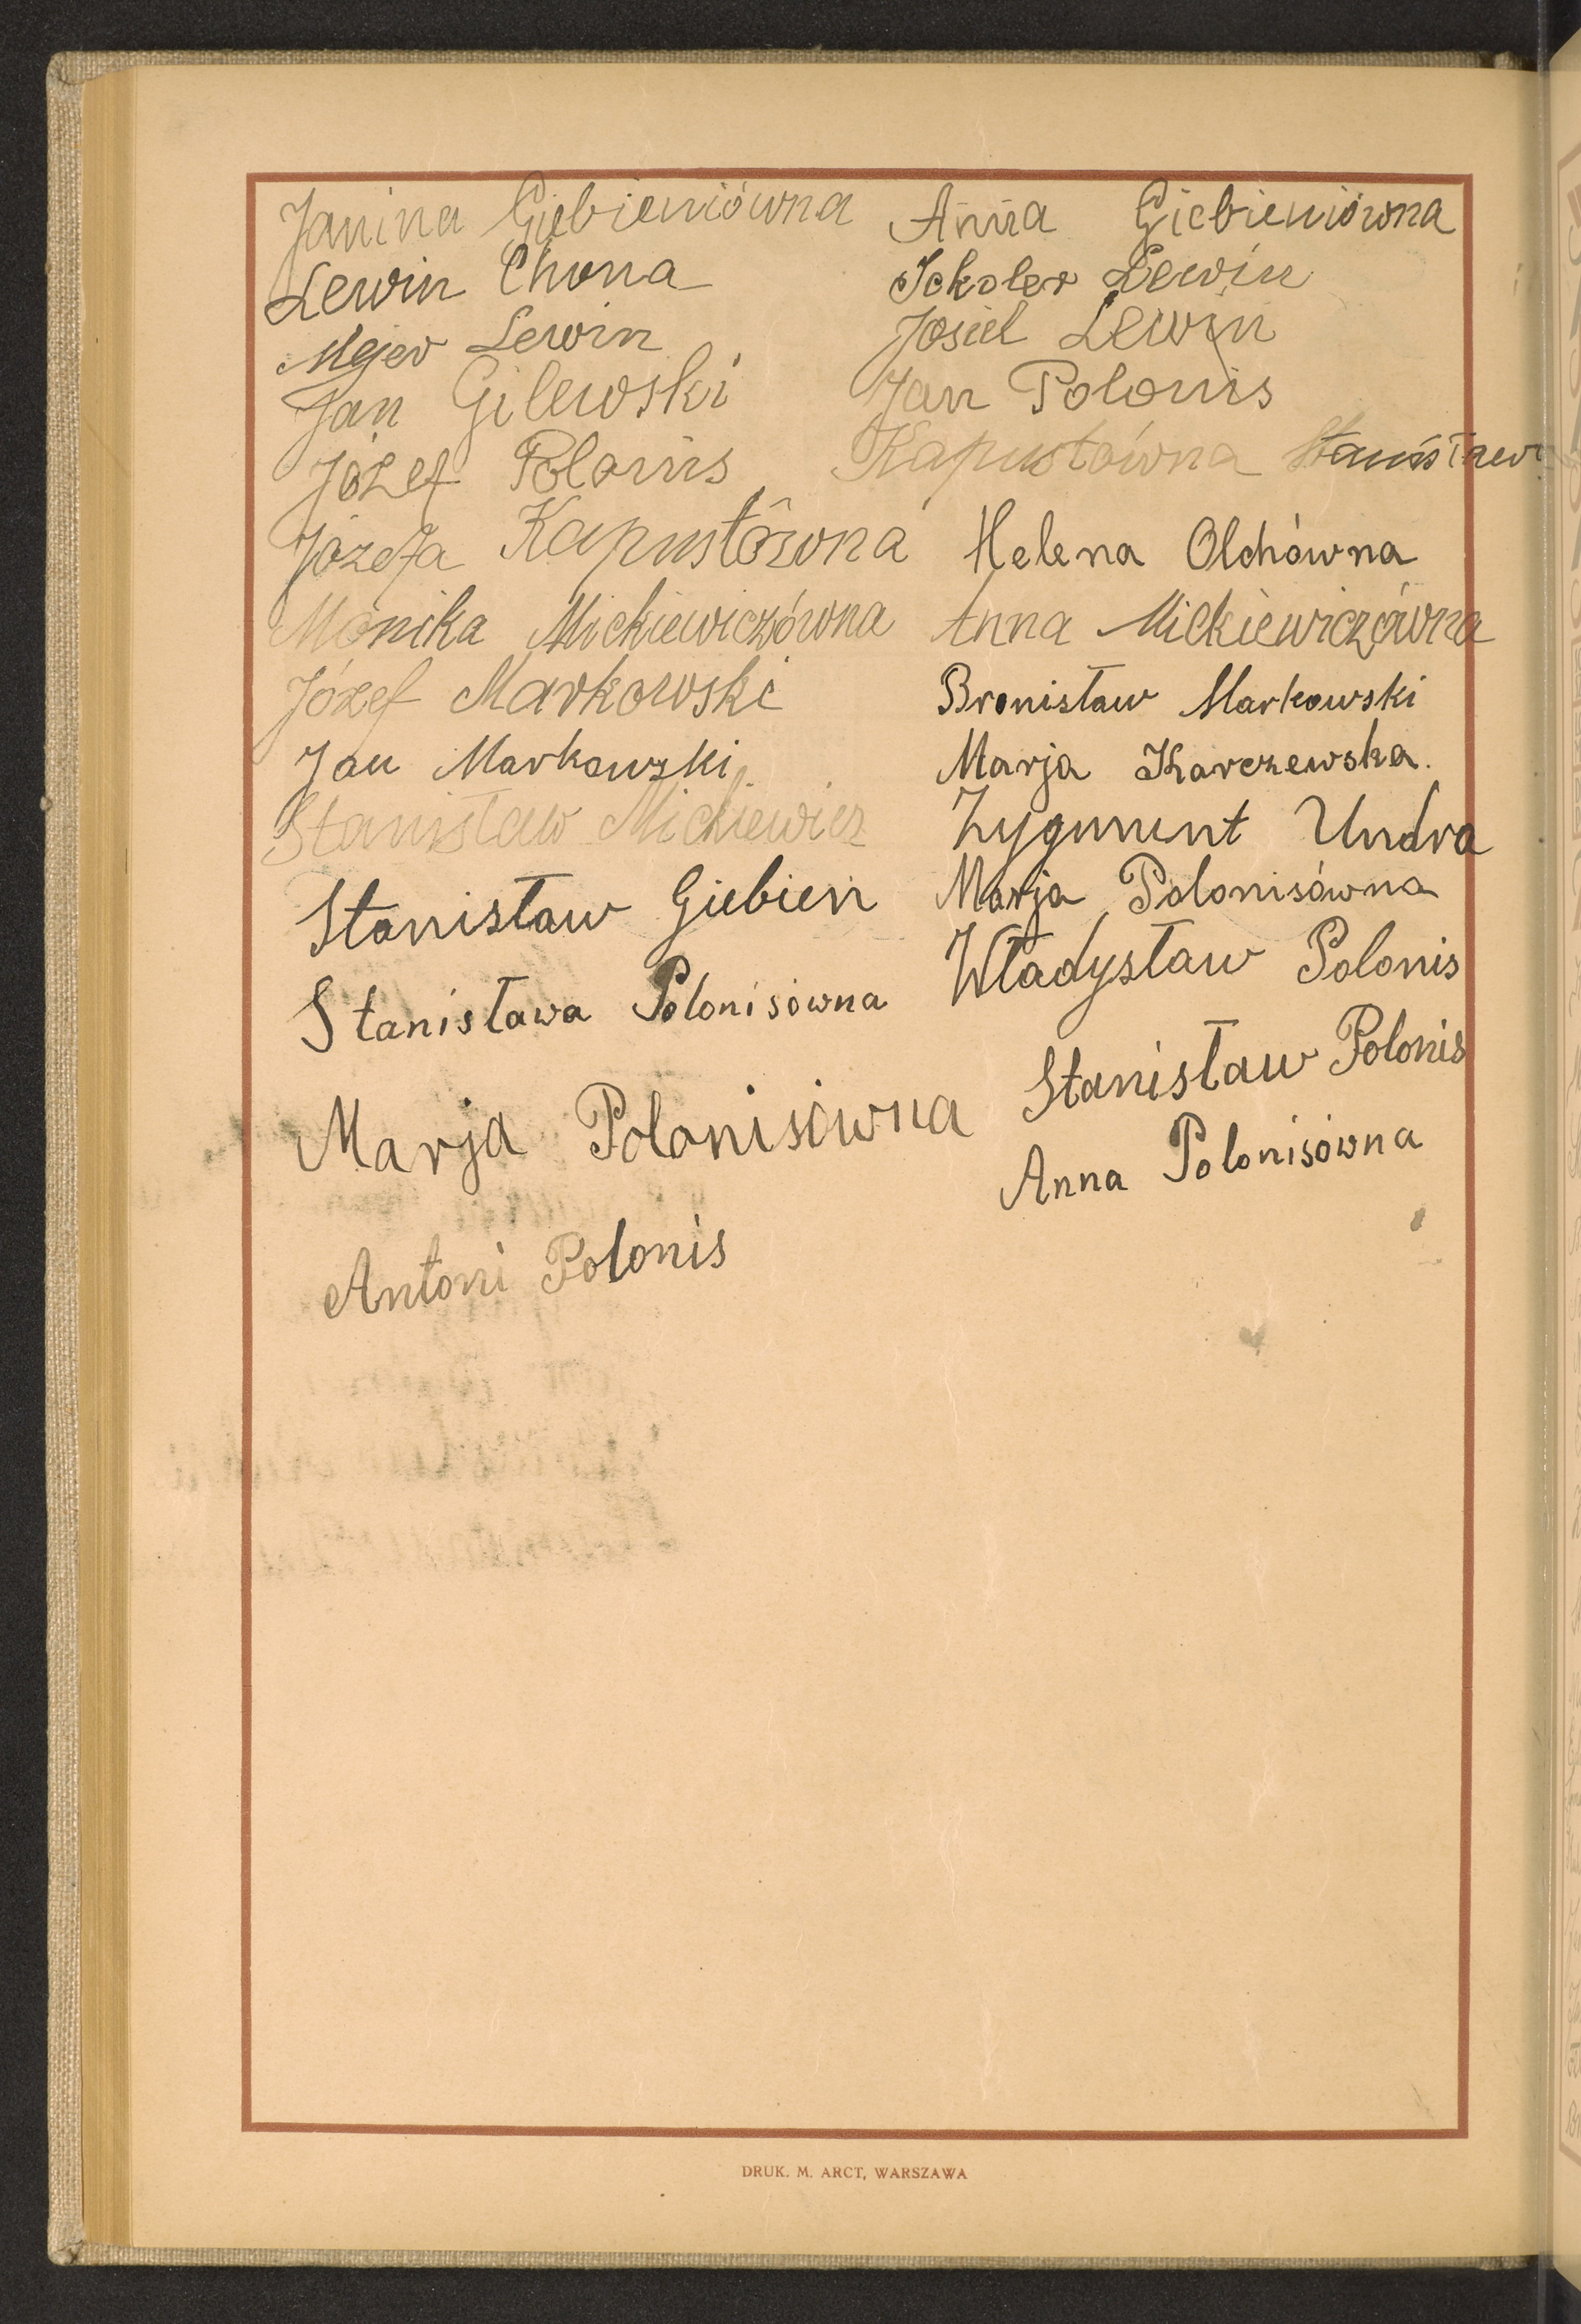 Janina Giebieniówna Anna Giebieniówna
Lewin Chona Ickoler Lewin
Mejer Lewin Josiel Lewin
Jan Gilewski Jan Polonis
Józef Polonis Kapustówna Stanisława
Józefa Kapustówna Helena Olchówna
Monika Mickiewiczówna Anna Mickiewiczówna
Józef Markowski Bronisław Markowski
Jan Markowski Marja Karczewska.
Stanisław Mickiewicz Zygmunt Undra
Stanisław Giebień Marja Polonisówna
Stanisława Polonisówna Władysław Polonis
Marja Polonisówna Stanisław Polonis
Anna Polonisówna
Antoni Polonis
DRUK. M. ARCT, WARSZAWA